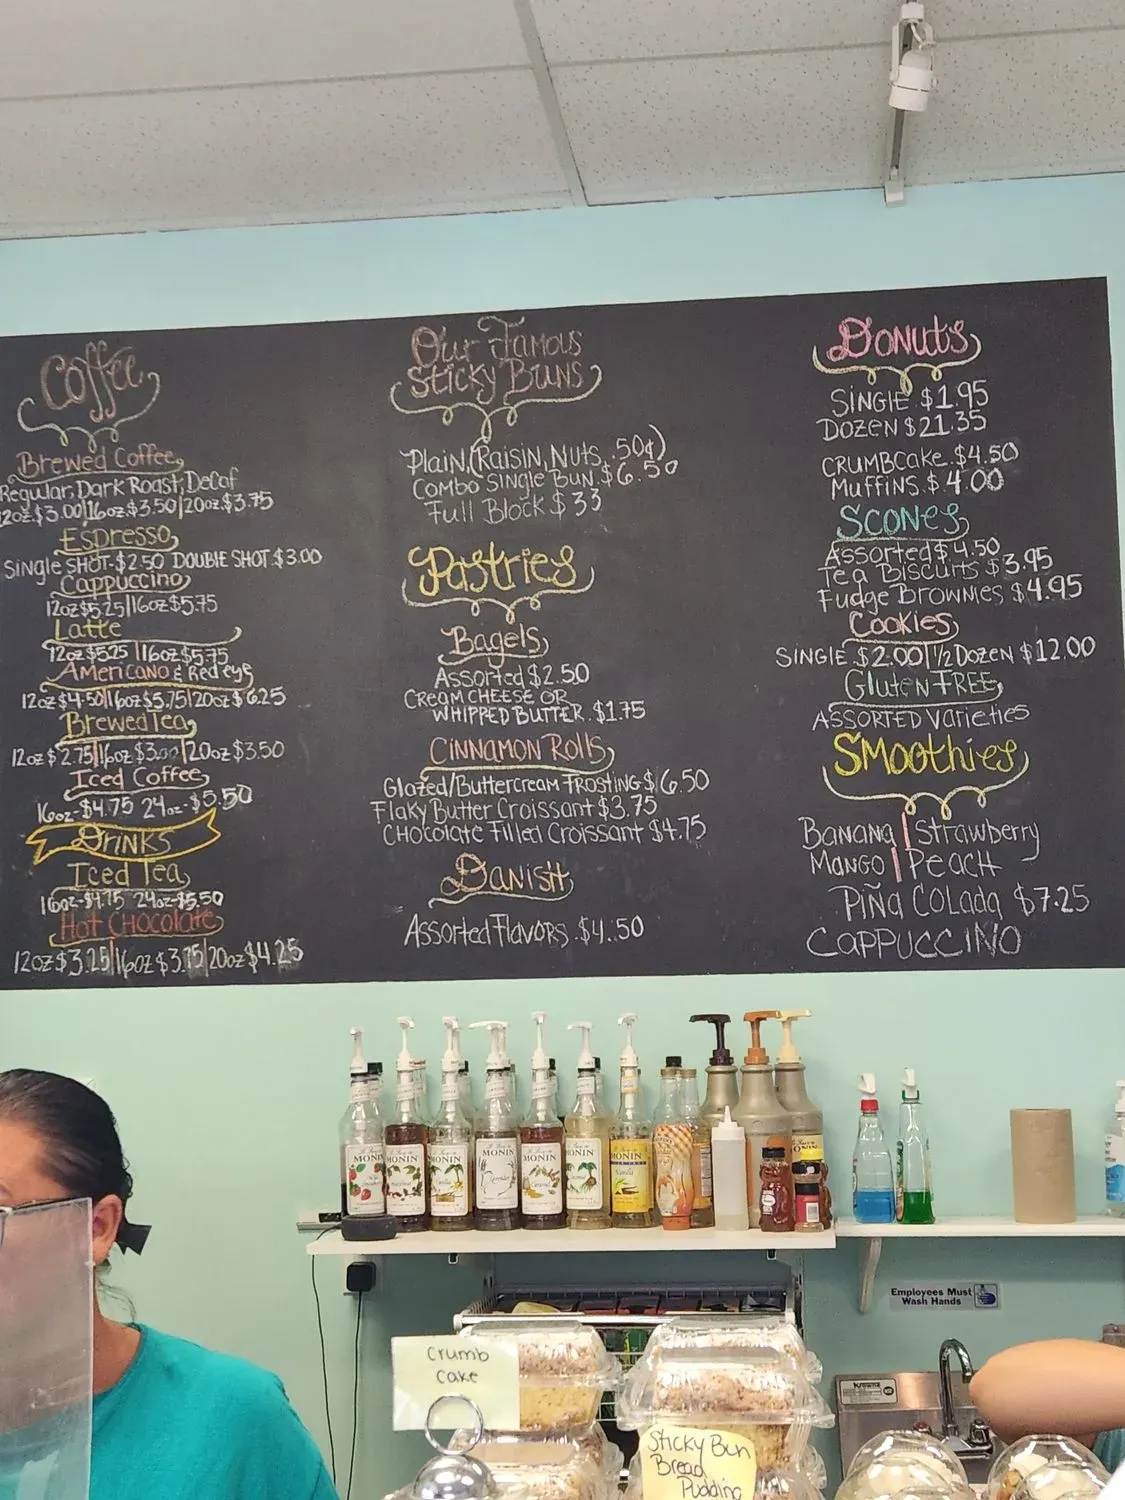 Coffee
Brewed Coffee
Regular, Dark Roast, Decaf
12oz.$3.00|16oz.$3.50|20oz.$3.75
Espresso
Single SHOT-$2.50 DOUBLE SHOT.$3.00
Cappuccino
12oz$5.25|16oz$5.75
Latte
12oz$5.25|16oz$5.75
Americano & Redeyes
12oz$4.50|16oz$5.75|20oz$6.25
Brewed Tea
12oz$2.75|16oz$3.00|20oz$3.50
Iced Coffee
16oz-$4.75 24oz-$5.50
DRINKS
Iced Tea
16oz-$4.75 24oz-$5.50
Hot CHOCOLATE
12oz$3.25|16oz$3.75|20oz$4.25
Our Famous
Sticky Buns
Plain,(Raisin,Nuts..50¢)
Combo Single Bun.$6.50
Full Block $33
Pastries
Bagels
Assorted $2.50
CREAM CHEESE OR
WHIPPED BUTTER.$1.75
CINNAMON ROLLS
Glazed/Buttercream FROSTING $6.50
Flaky Butter Croissant $3.75
CHOCOLATE Filled Croissant $4.75
Danish
Assorted Flavors.$4.50
Donuts
SINGLE.$1.95
DOZEN $21.35
CRUMBCAKE.$4.50
Muffins.$4.00
SCONES
Assorted $4.50
Tea Biscuits $3.95
Fudge Brownies $4.95
Cookies
SINGLE.$2.00|1/2 DOZEN $12.00
Gluten FREE
ASSORTED Varieties
SMoothies
Banana|Strawberry
Mango|Peach
PIÑA COLADA $7.25
CAPPUCCINO
MONIN
MONIN
MONIN
MONIN
Lavender
MONIN
Caramel
MONIN
MONIN
Vanilla
Employees Must
Wash Hands
Crumb
Cake
Sticky Bun
Bread
Pudding